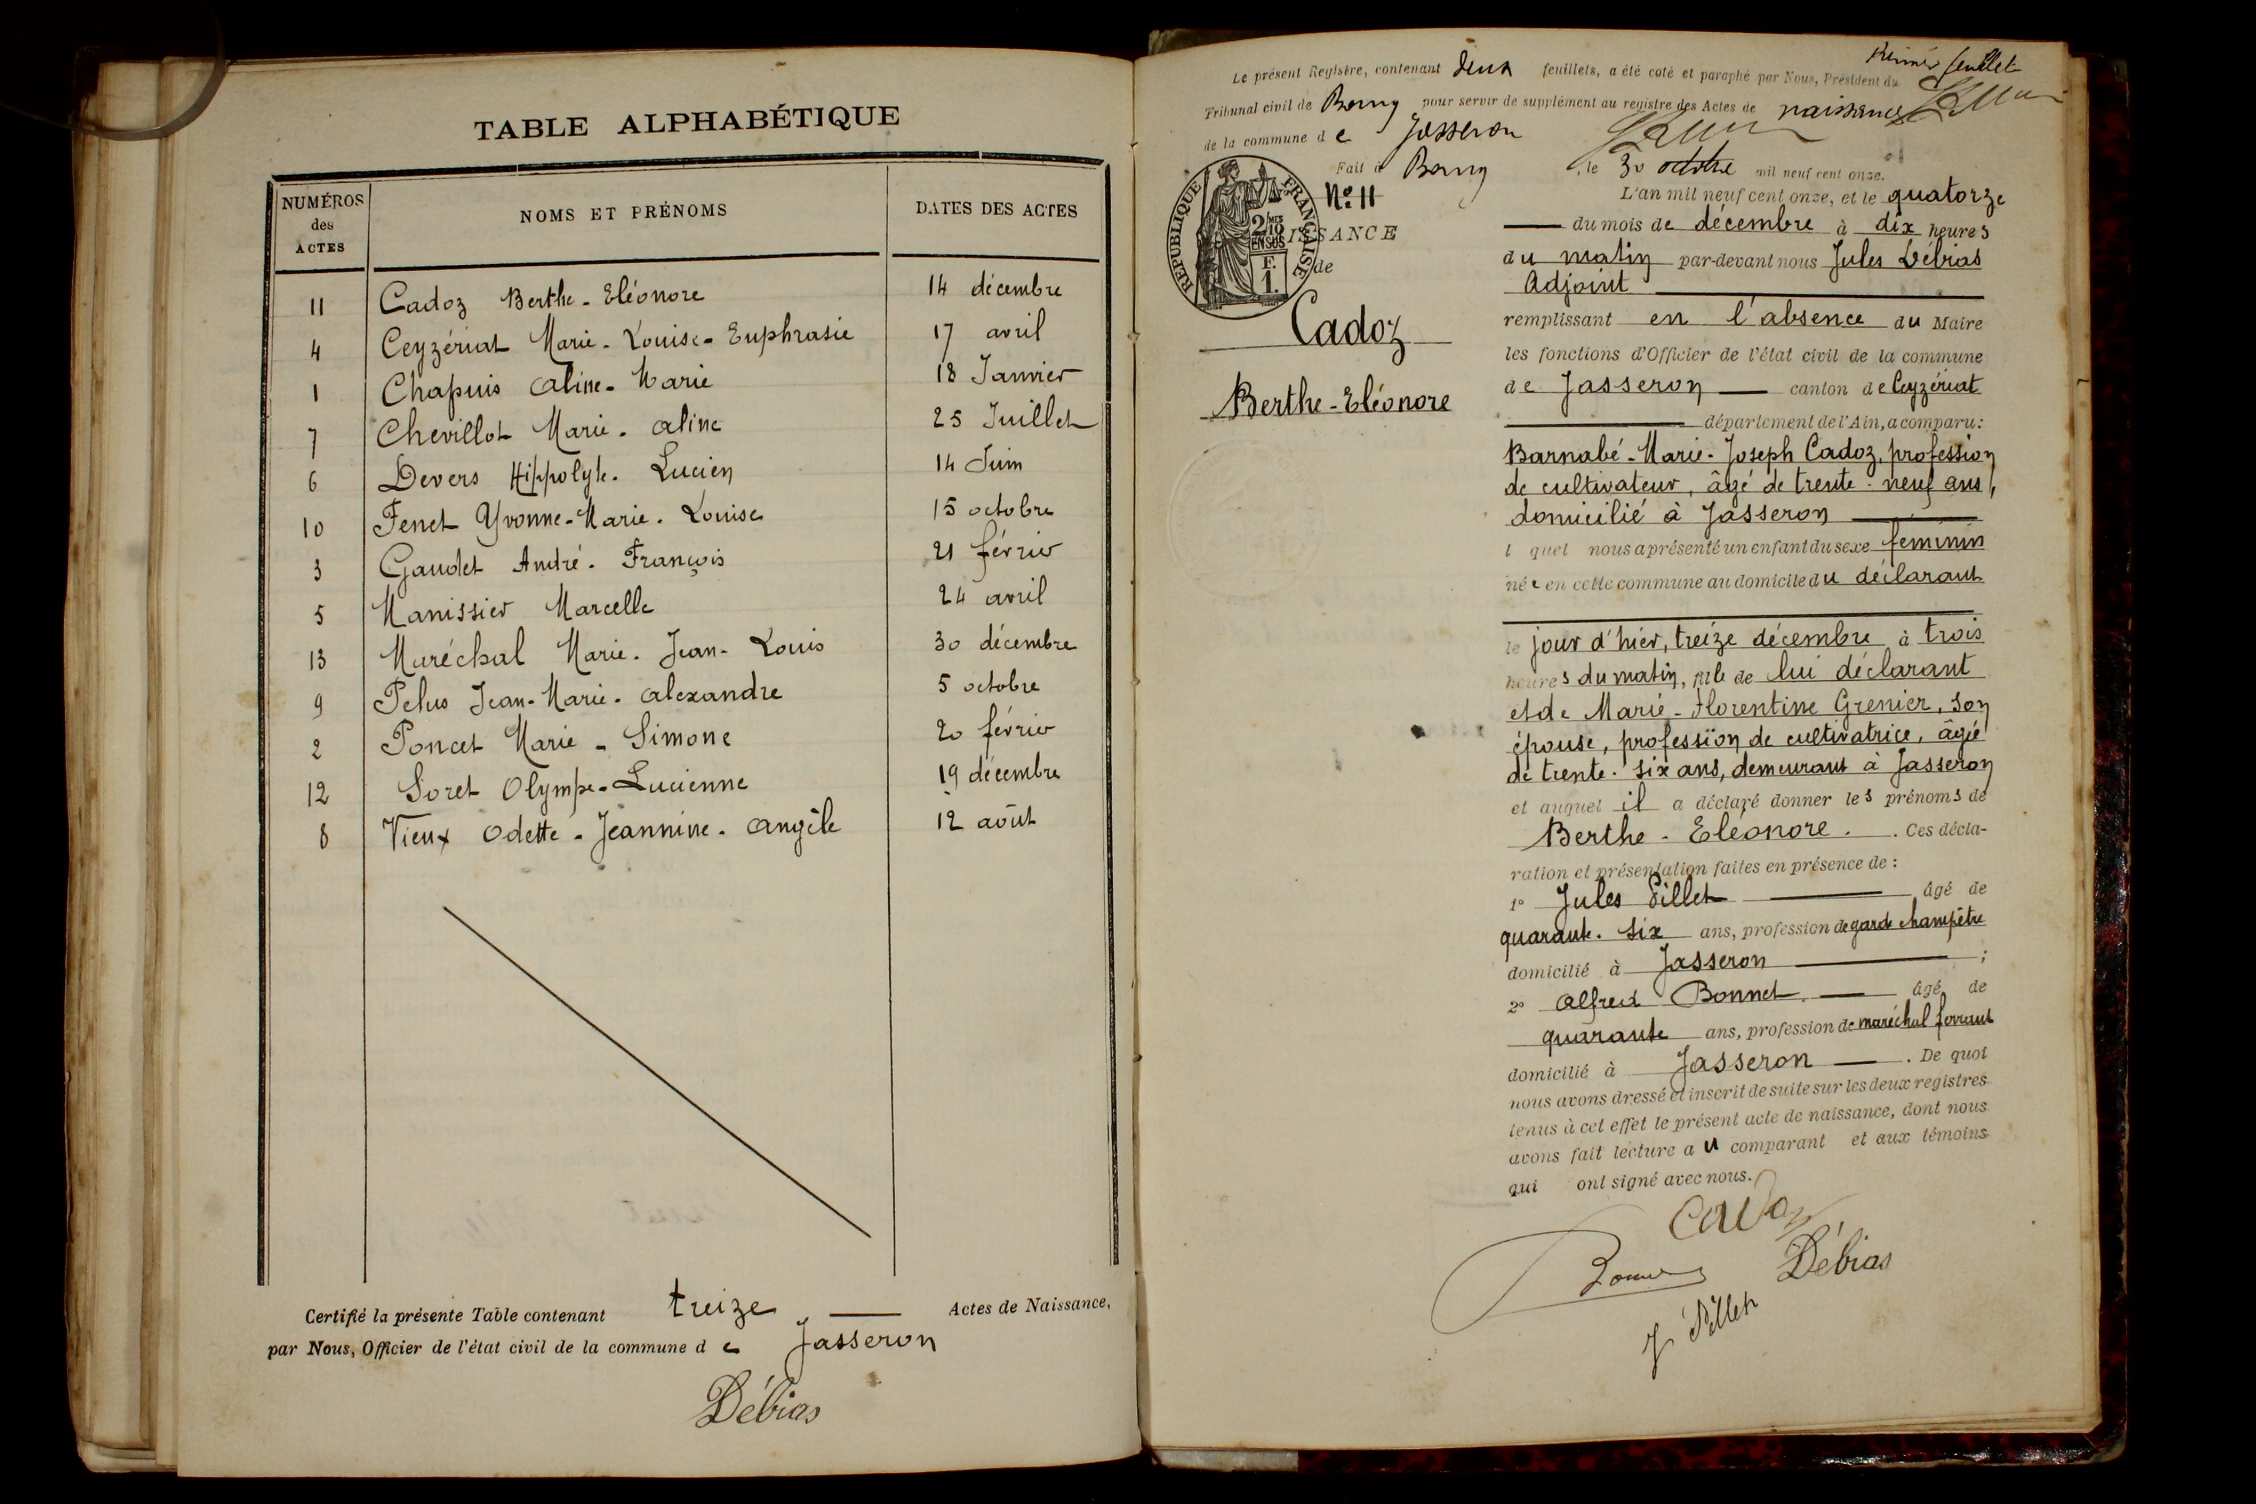 TABLE ALPHABÉTIQUE
NUMÉROS des ACTES NOMS ET PRÉNOMS DATES DES ACTES
11 Cadoz Berthe-Eléonore 14 décembre
4 Ceyzériat Marie-Louise-Euphrasie 17 avril
1 Chapuis Aline-Marie 18 Janvier
7 Chevillot Marie-Aline 25 Juillet
6 Devers Hippolyte-Lucien 14 Juin
10 Fenet Yvonne-Marie-Louise 15 octobre
3 Gaudet André-François 21 février
5 Manissier Marcelle 24 avril
13 Maréchal Marie-Jean-Louis 30 décembre
9 Pelus Jean-Marie-Alexandre 5 octobre
2 Poncet Marie-Simone 20 février
12 Soret Olympe-Lucienne 19 décembre
8 Vieux Odette-Jeannine-Angèle 12 août
Certifié la présente Table contenant treize Actes de Naissance,
par Nous, Officier de l'état civil de la commune de Jasseron
Débias
Premier feuillet
Le présent Registre, contenant deux feuillets, a été coté et paraphé par Nous, Président du
Tribunal civil de Bourg pour servir de supplément au registre des Actes de naissance
de la commune de Jasseron
Fait à Bourg, le 30 octobre mil neuf cent onze.
RÉPUBLIQUE FRANÇAISE
2/10 EN SUS
F.
1.
N° 11
ISSANCE
de
Cadoz
Berthe-Eléonore
L'an mil neuf cent onze, et le quatorze
du mois de décembre à dix heures
du matin par-devant nous Jules Débias
Adjoint
remplissant en l'absence du Maire
les fonctions d'Officier de l'état civil de la commune
de Jasseron canton de Ceyzériat
département de l'Ain, a comparu :
Barnabé-Marie-Joseph Cadoz, profession
de cultivateur, âgé de trente-neuf ans,
domicilié à Jasseron
l quel nous a présenté un enfant du sexe féminin
née en cette commune au domicile du déclarant
le jour d'hier, treize décembre à trois
heures du matin, fille de lui déclarant
et de Marie-Florentine Grenier, son
épouse, profession de cultivatrice, âgée
de trente-six ans, demeurant à Jasseron
et auquel il a déclaré donner les prénoms de
Berthe-Eléonore. Ces décla-
ration et présentation faites en présence de :
1° Jules Pillet âgé de
quarante-six ans, profession de garde champêtre
domicilié à Jasseron ;
2° Alfred Bonnet âgé de
quarante ans, profession de maréchal ferrant
domicilié à Jasseron. De quoi
nous avons dressé et inscrit de suite sur les deux registres
tenus à cet effet le présent acte de naissance, dont nous
avons fait lecture au comparant et aux témoins
qui ont signé avec nous.
Cadoz
Bonnet Débias
J Pillet